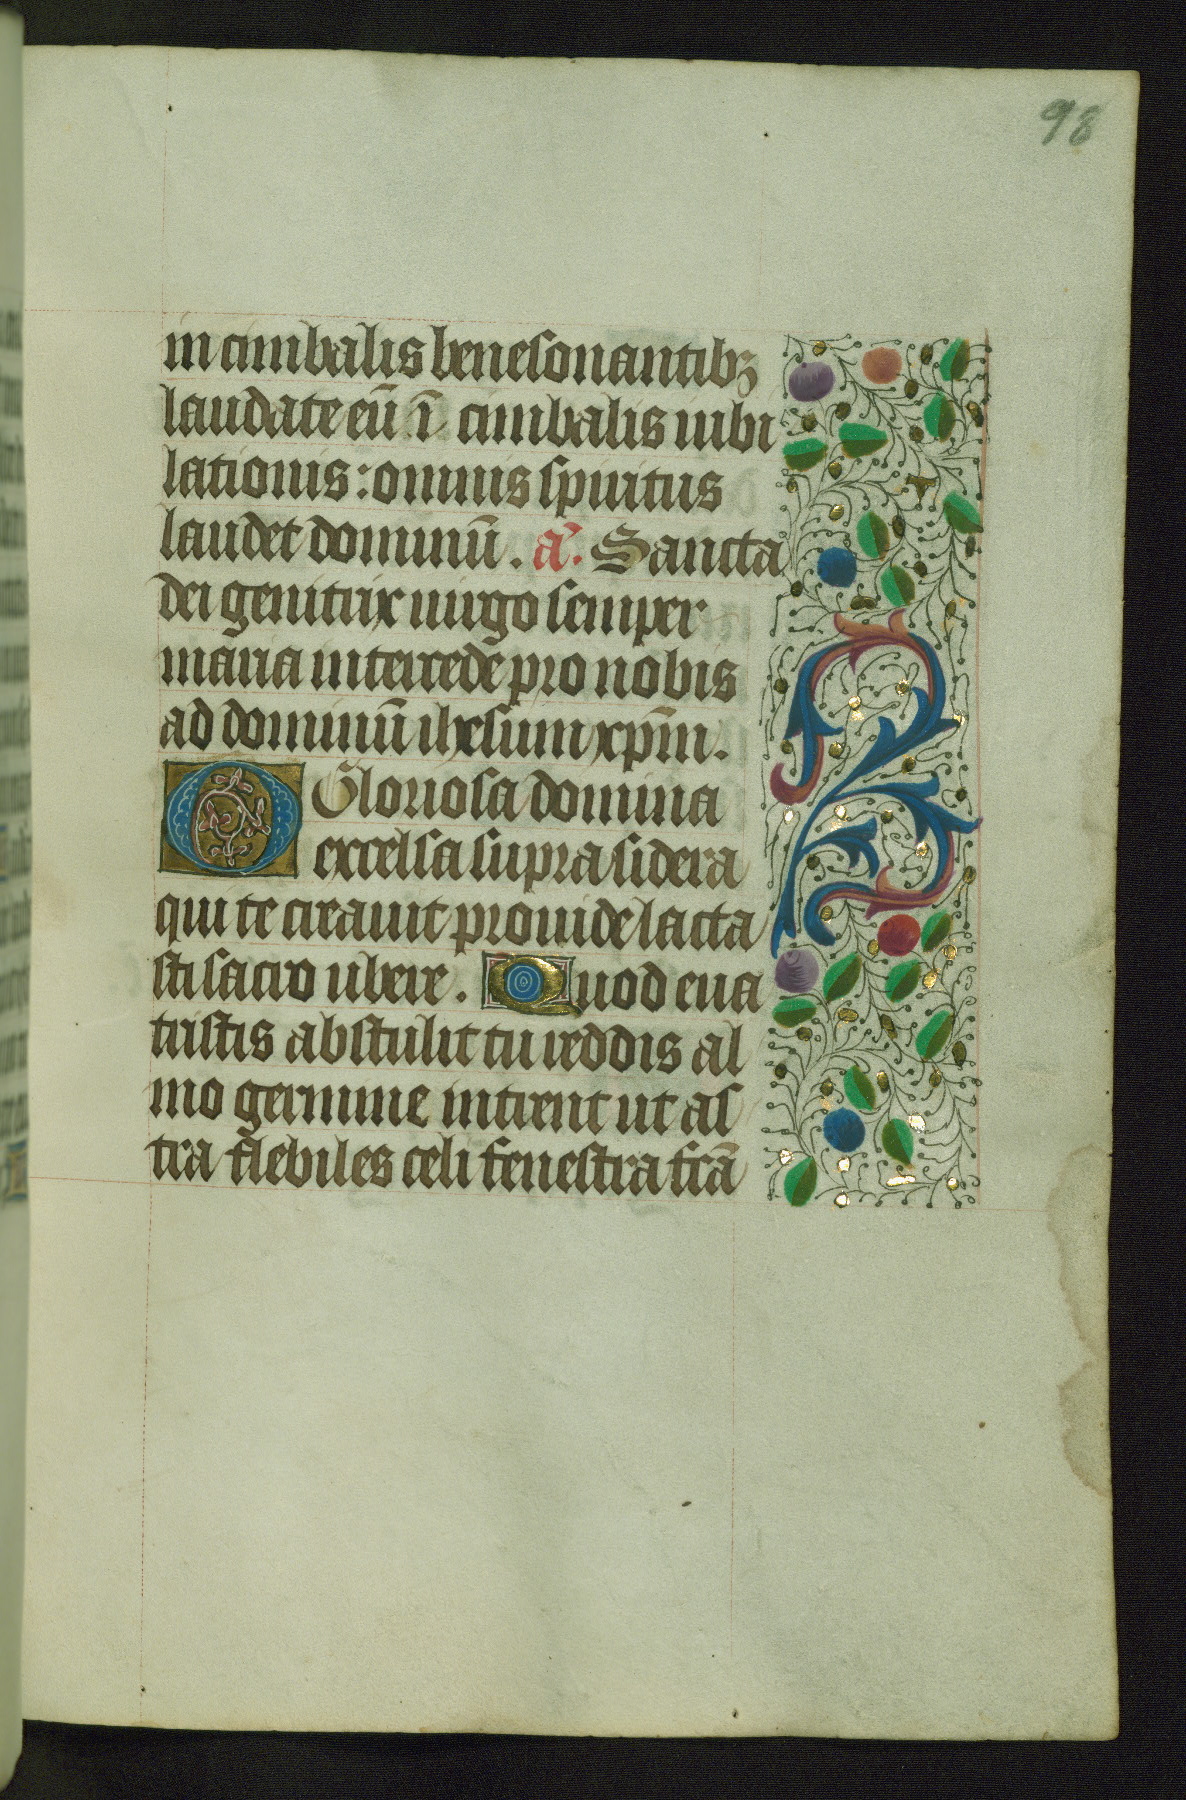 98
in cimbalis benesonantibꝫ
laudate eū ī cimbalis iubi
lationis: omnis spiritus
laudet dominū. a͛. Sancta
dei genitrix uirgo semper
maria intercede pro nobis
ad dominū ihesum xp̄m.
O Gloriosa domina
excelsa supra sidera
qui te creauit prouide lacta
sti sacro ubere. Quod eua
tristis abstulit tu reddis al
mo germine intrent ut as
tra flebiles celi fenestra frā